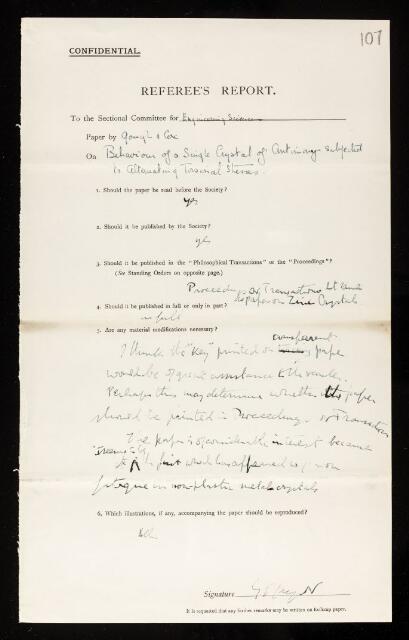 107
CONFIDENTIAL.
REFEREE'S REPORT.
To the Sectional Committee for Engineering Science
Paper by Gough & Cox
On Behaviour of a Single Crystal of Antimony subjected
to Alternating Torsional Stresses.
1. Should the paper be read before the Society?
yes
2. Should it be published by the Society?
yes
3. Should it be published in the "Philosophical Transactions" or the "Proceedings"?
(See Standing Orders on opposite page.)
Proceedings or Transactions
paper on Zinc Crystals
4. Should it be published in full or only in part?
in full
5. Are any material modifications necessary?
transparent
I think the "key" printed on paper
would be of great assistance to the reader.
Perhaps this may determine whether the paper
should be printed in Proceedings or Transactions
The paper is of considerable interest because
it is the first which has appeared
fatigue in non-plastic metal crystals
6. Which illustrations, if any, accompanying the paper should be reproduced?
all
Signature
It is requested that any further remarks may be written on foolscap paper.